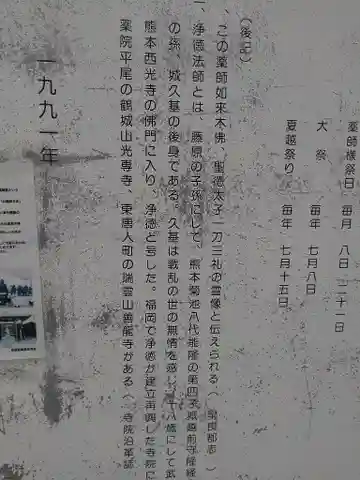 薬師様祭日 毎月 八日 二十一日
大祭 毎年 七月八日
夏越祭り 毎年 七月十五日
（後記）
一、この薬師如来木佛、聖徳太子一刀三礼の霊像と伝えられる
一、浄徳法師とは、藤原の子孫にして、熊本菊池八代能隆の第四子
の孫、城久基の後身である。久基は戦乱の世の無情を感じ、十八歳にして武
熊本西光寺の佛門に入り、浄徳と号した。福岡で浄徳が建立再興した寺院に
薬院平尾の鶴城山光専寺、東唐人町の瑞雲山善龍寺がある（寺院沿革誌
一九九一年